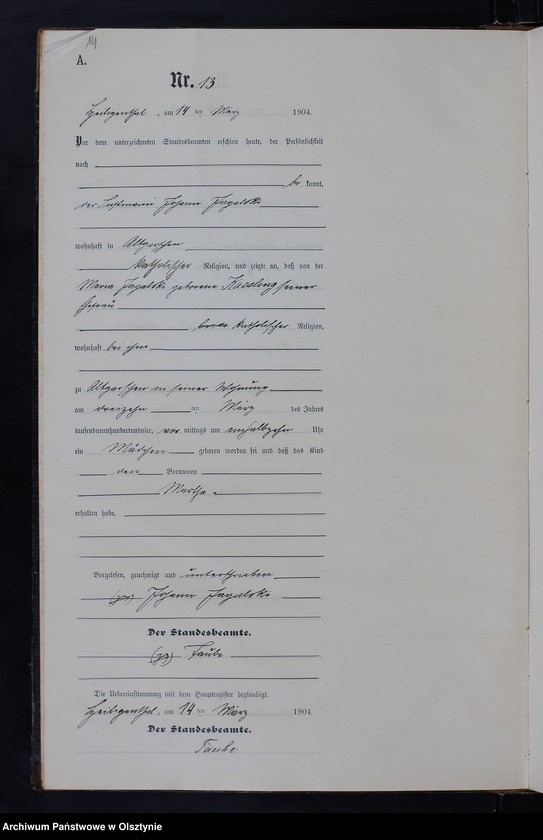 14
A.
Nr. 13
Heiligenthal, am 14 ten März 1904.
Vor dem unterzeichneten Standesbeamten erschien heute, der Persönlichkeit
nach
be kannt,
der Johann Jagalski
wohnhaft in Altgarschen
katholischer Religion, und zeigte an, daß von der
Maria Jagalski geborene Kaesling seiner
Ehefrau
katholischer Religion,
wohnhaft bei ihm
zu Altgarschen in seiner Wohnung
am dreizehn ten März des Jahres
tausendneunhundertundvier, vor mittags um Uhr
ein Mädchen geboren worden sei und daß das Kind
den Vornamen
Martha
erhalten habe.
Vorgelesen, genehmigt und unterschrieben
(gz) Johann Jagalski
Der Standesbeamte.
(gz) Taube
Die Uebereinstimmung mit dem Hauptregister beglaubigt.
Heiligenthal, am 14 ten März 1904.
Der Standesbeamte.
Taube
Archiwum Państwowe w Olsztynie